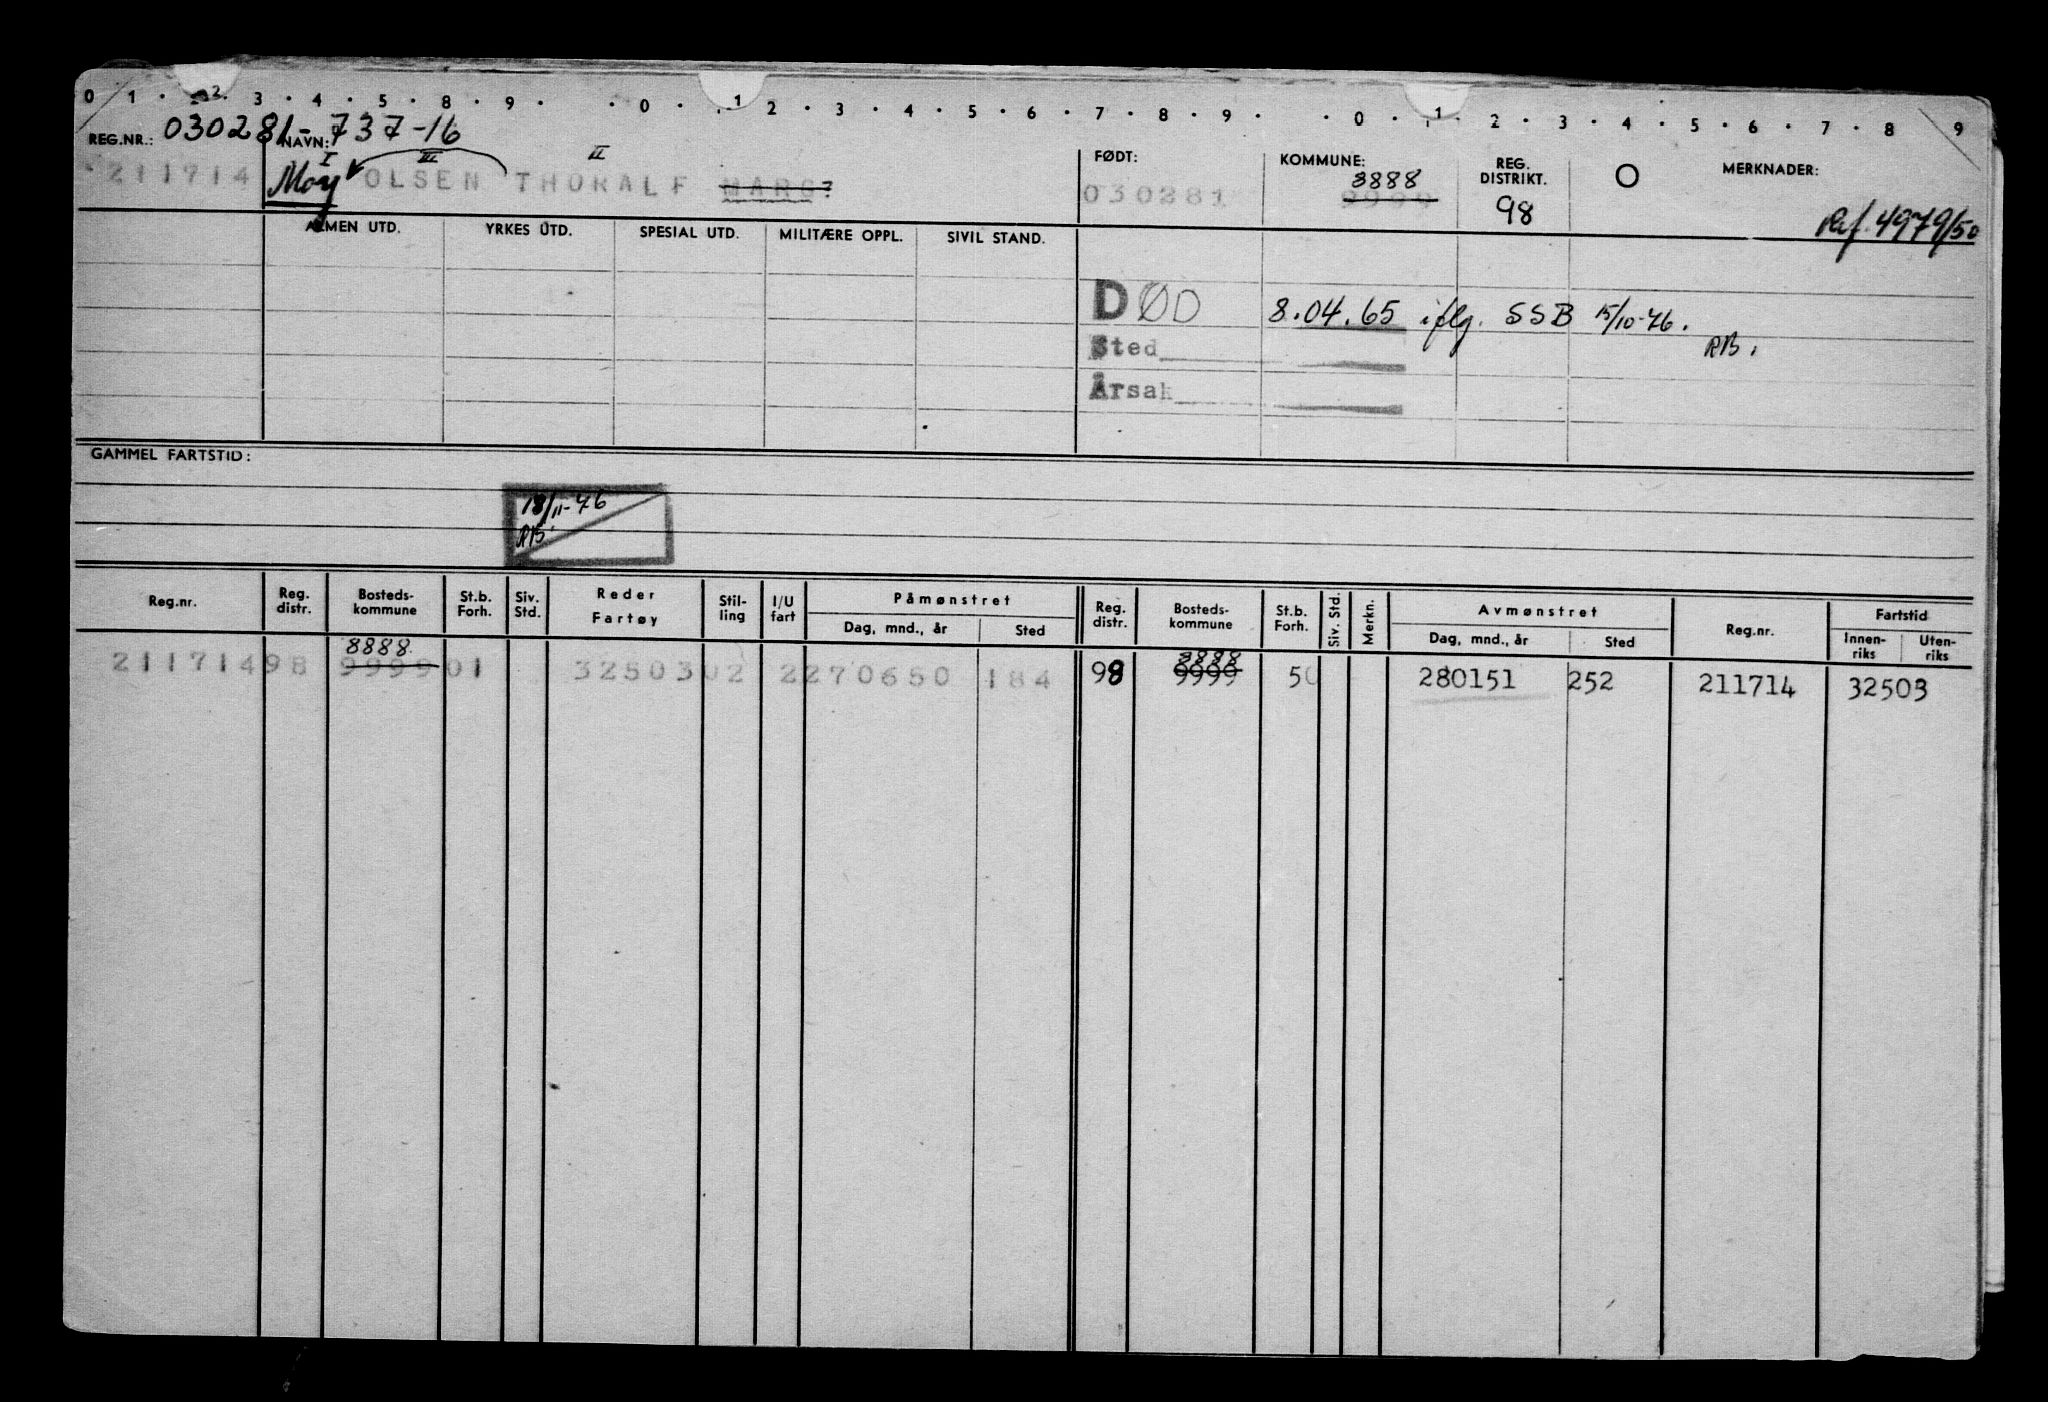 0 1 . 2 . 3 . 4 . 5 . 8 . 9 . . 0 . 1 2 . 3 . 4 . 5 . 6 . 7 . 8 . 9 . . 0 . 1 . 2 . 3 . 4 . 5 . 6 . 7 . 8 9
REG.NR.: 030281-737-16 NAVN:
FØDT: KOMMUNE: REG. DISTRIKT. O MERKNADER:
I III II
211714 Moy OLSEN THORALF MARG? 030281 8888 9999 98
Ref. 4979/50
ALMEN UTD. YRKES UTD. SPESIAL UTD. MILITÆRE OPPL. SIVIL STAND.
DØD 8.04.65 iflg. SSB 15/10-76.
RB.
Sted
Årsak
GAMMEL FARTSTID:
18/11-76
RB
Reg.nr. Reg. distr. Bosteds- kommune St.b. Forh. Siv. Std. Reder Fartøy Stil- ling I/U fart Påmønstret Dag, mnd., år Sted Reg. distr. Bosteds- kommune St.b. Forh. Siv. Std. Merkn. Avmønstret Dag, mnd., år Sted Reg.nr. Fartstid Innen- riks Uten- riks
8888 8888
211714 98 9999 01 32503 02 2 270650 184 98 9999 50 280151 252 211714 32503